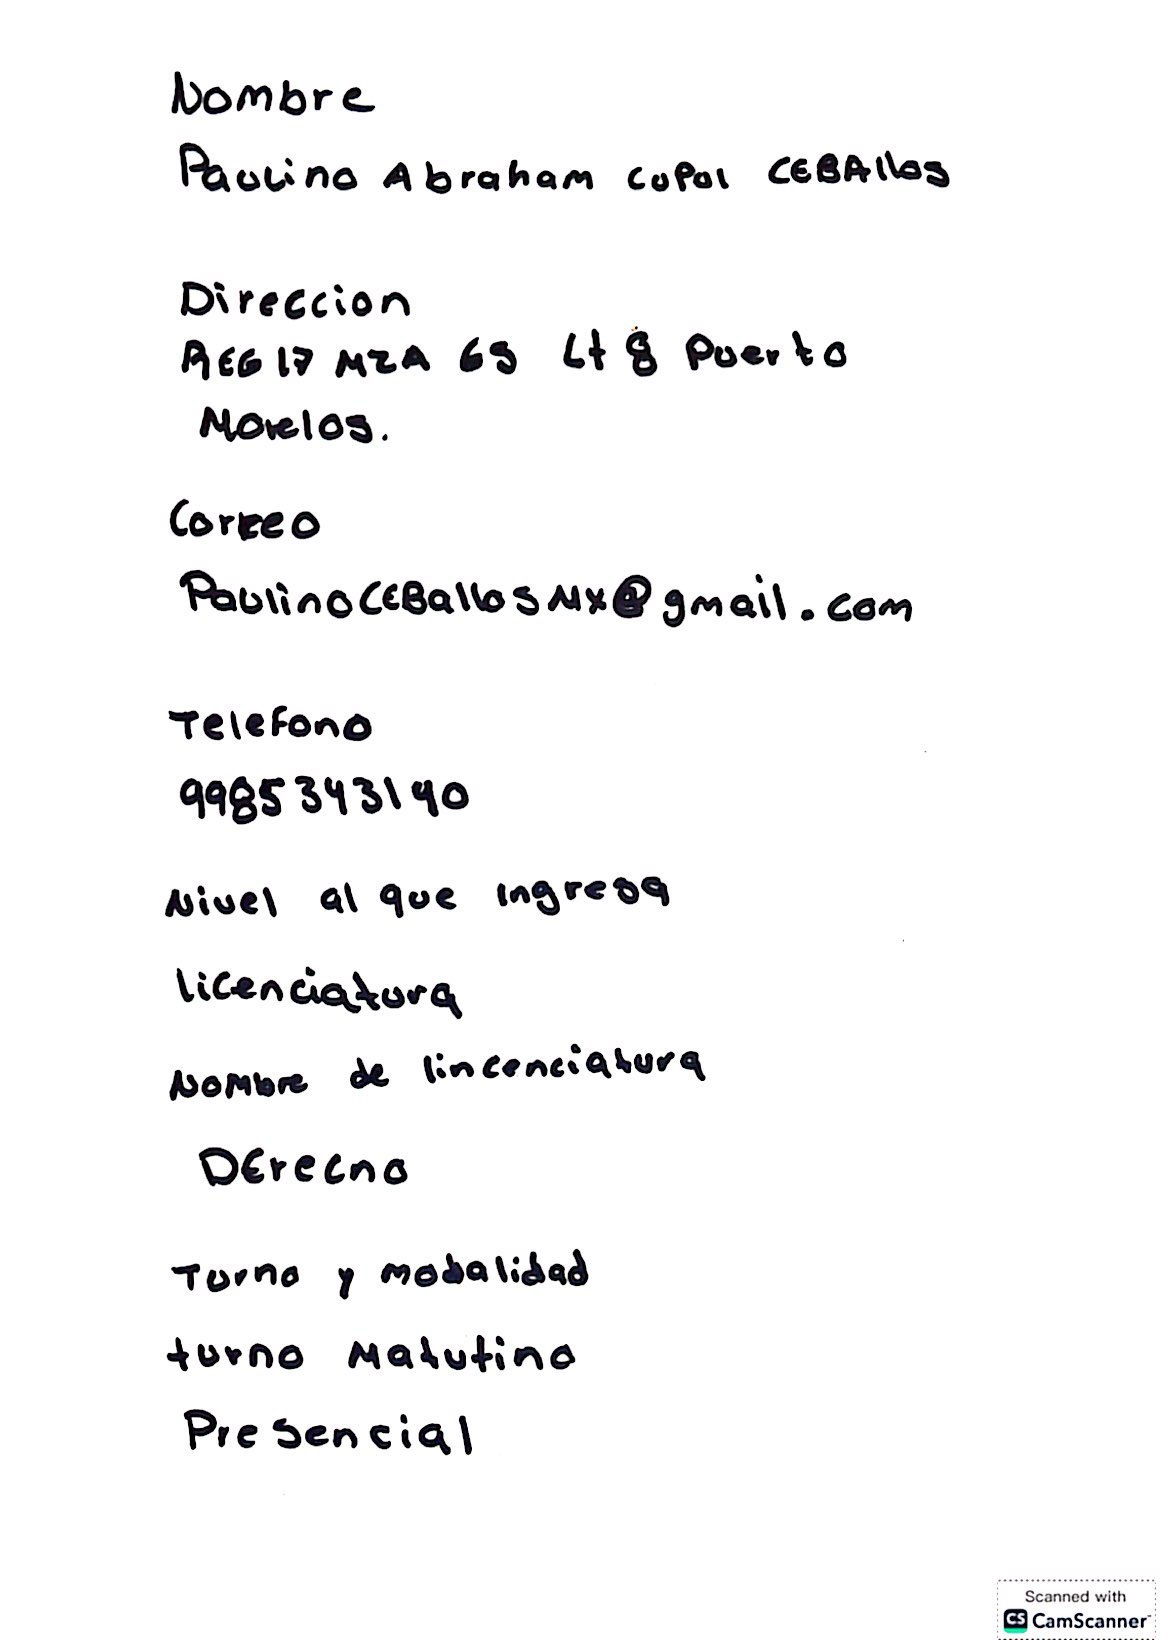 Nombre
Paulino Abraham cupul CEBAllos
Direccion
REG 17 MZA 65 Lt 8 Puerto
Morelos.
Correo
PaulinoCEBallosMx@gmail.com
Telefono
9985343140
Nivel al que ingresa
licenciatura
Nombre de lincenciatura
DErecho
Turno y modalidad
turno Matutino
Presencial
Scanned with
CS CamScanner